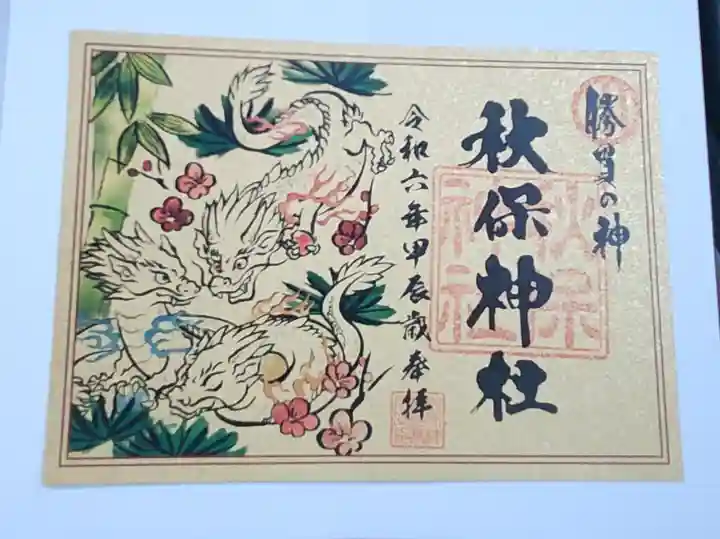 勝負の神
秋保神社
令和六年甲辰歳奉拝
秋保神社